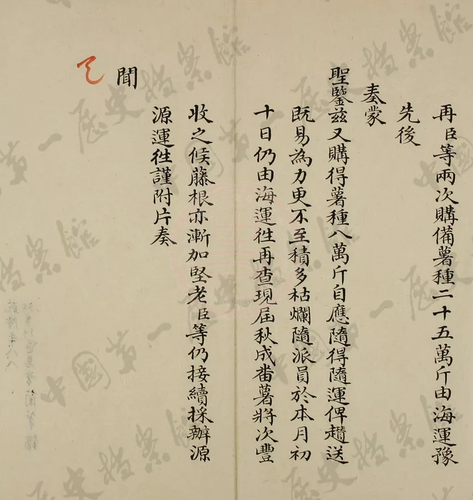 再臣等兩次購備薯種二十五萬斤由海運豫
先後
奏蒙
聖鑒兹又購得薯種八萬斤自應隨得隨運俾趲送
既易為力更不至積多枯爛隨派員於本月初
十日仍由海運徃再查現屆秋成畨薯將次豐
收之候藤根亦漸加堅老臣等仍接續採辦源
源運徃謹附片奏
聞
中國第一歷史檔案館